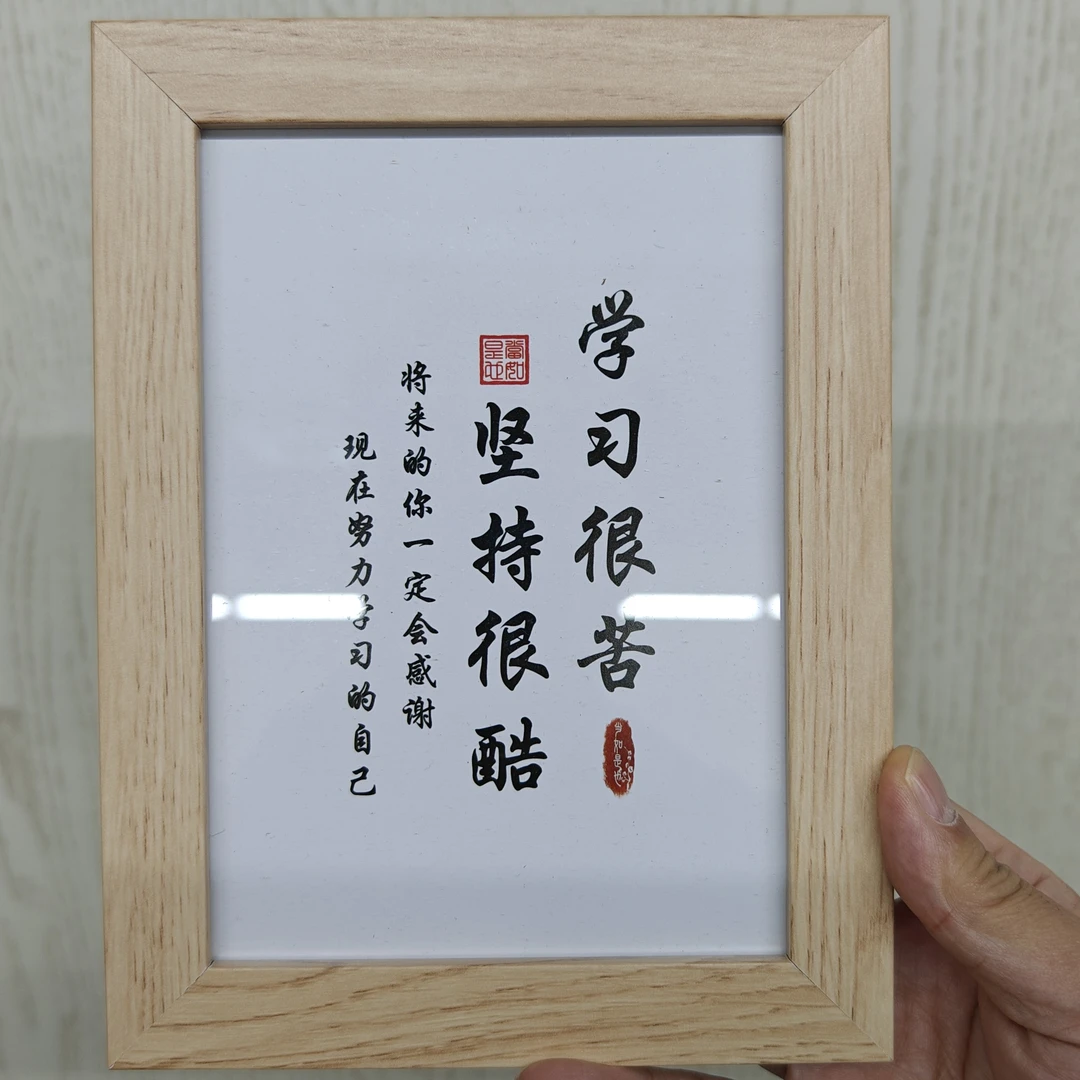 学习很苦
坚持很酷
将来的你一定会感谢
现在努力学习的自己
當如是也